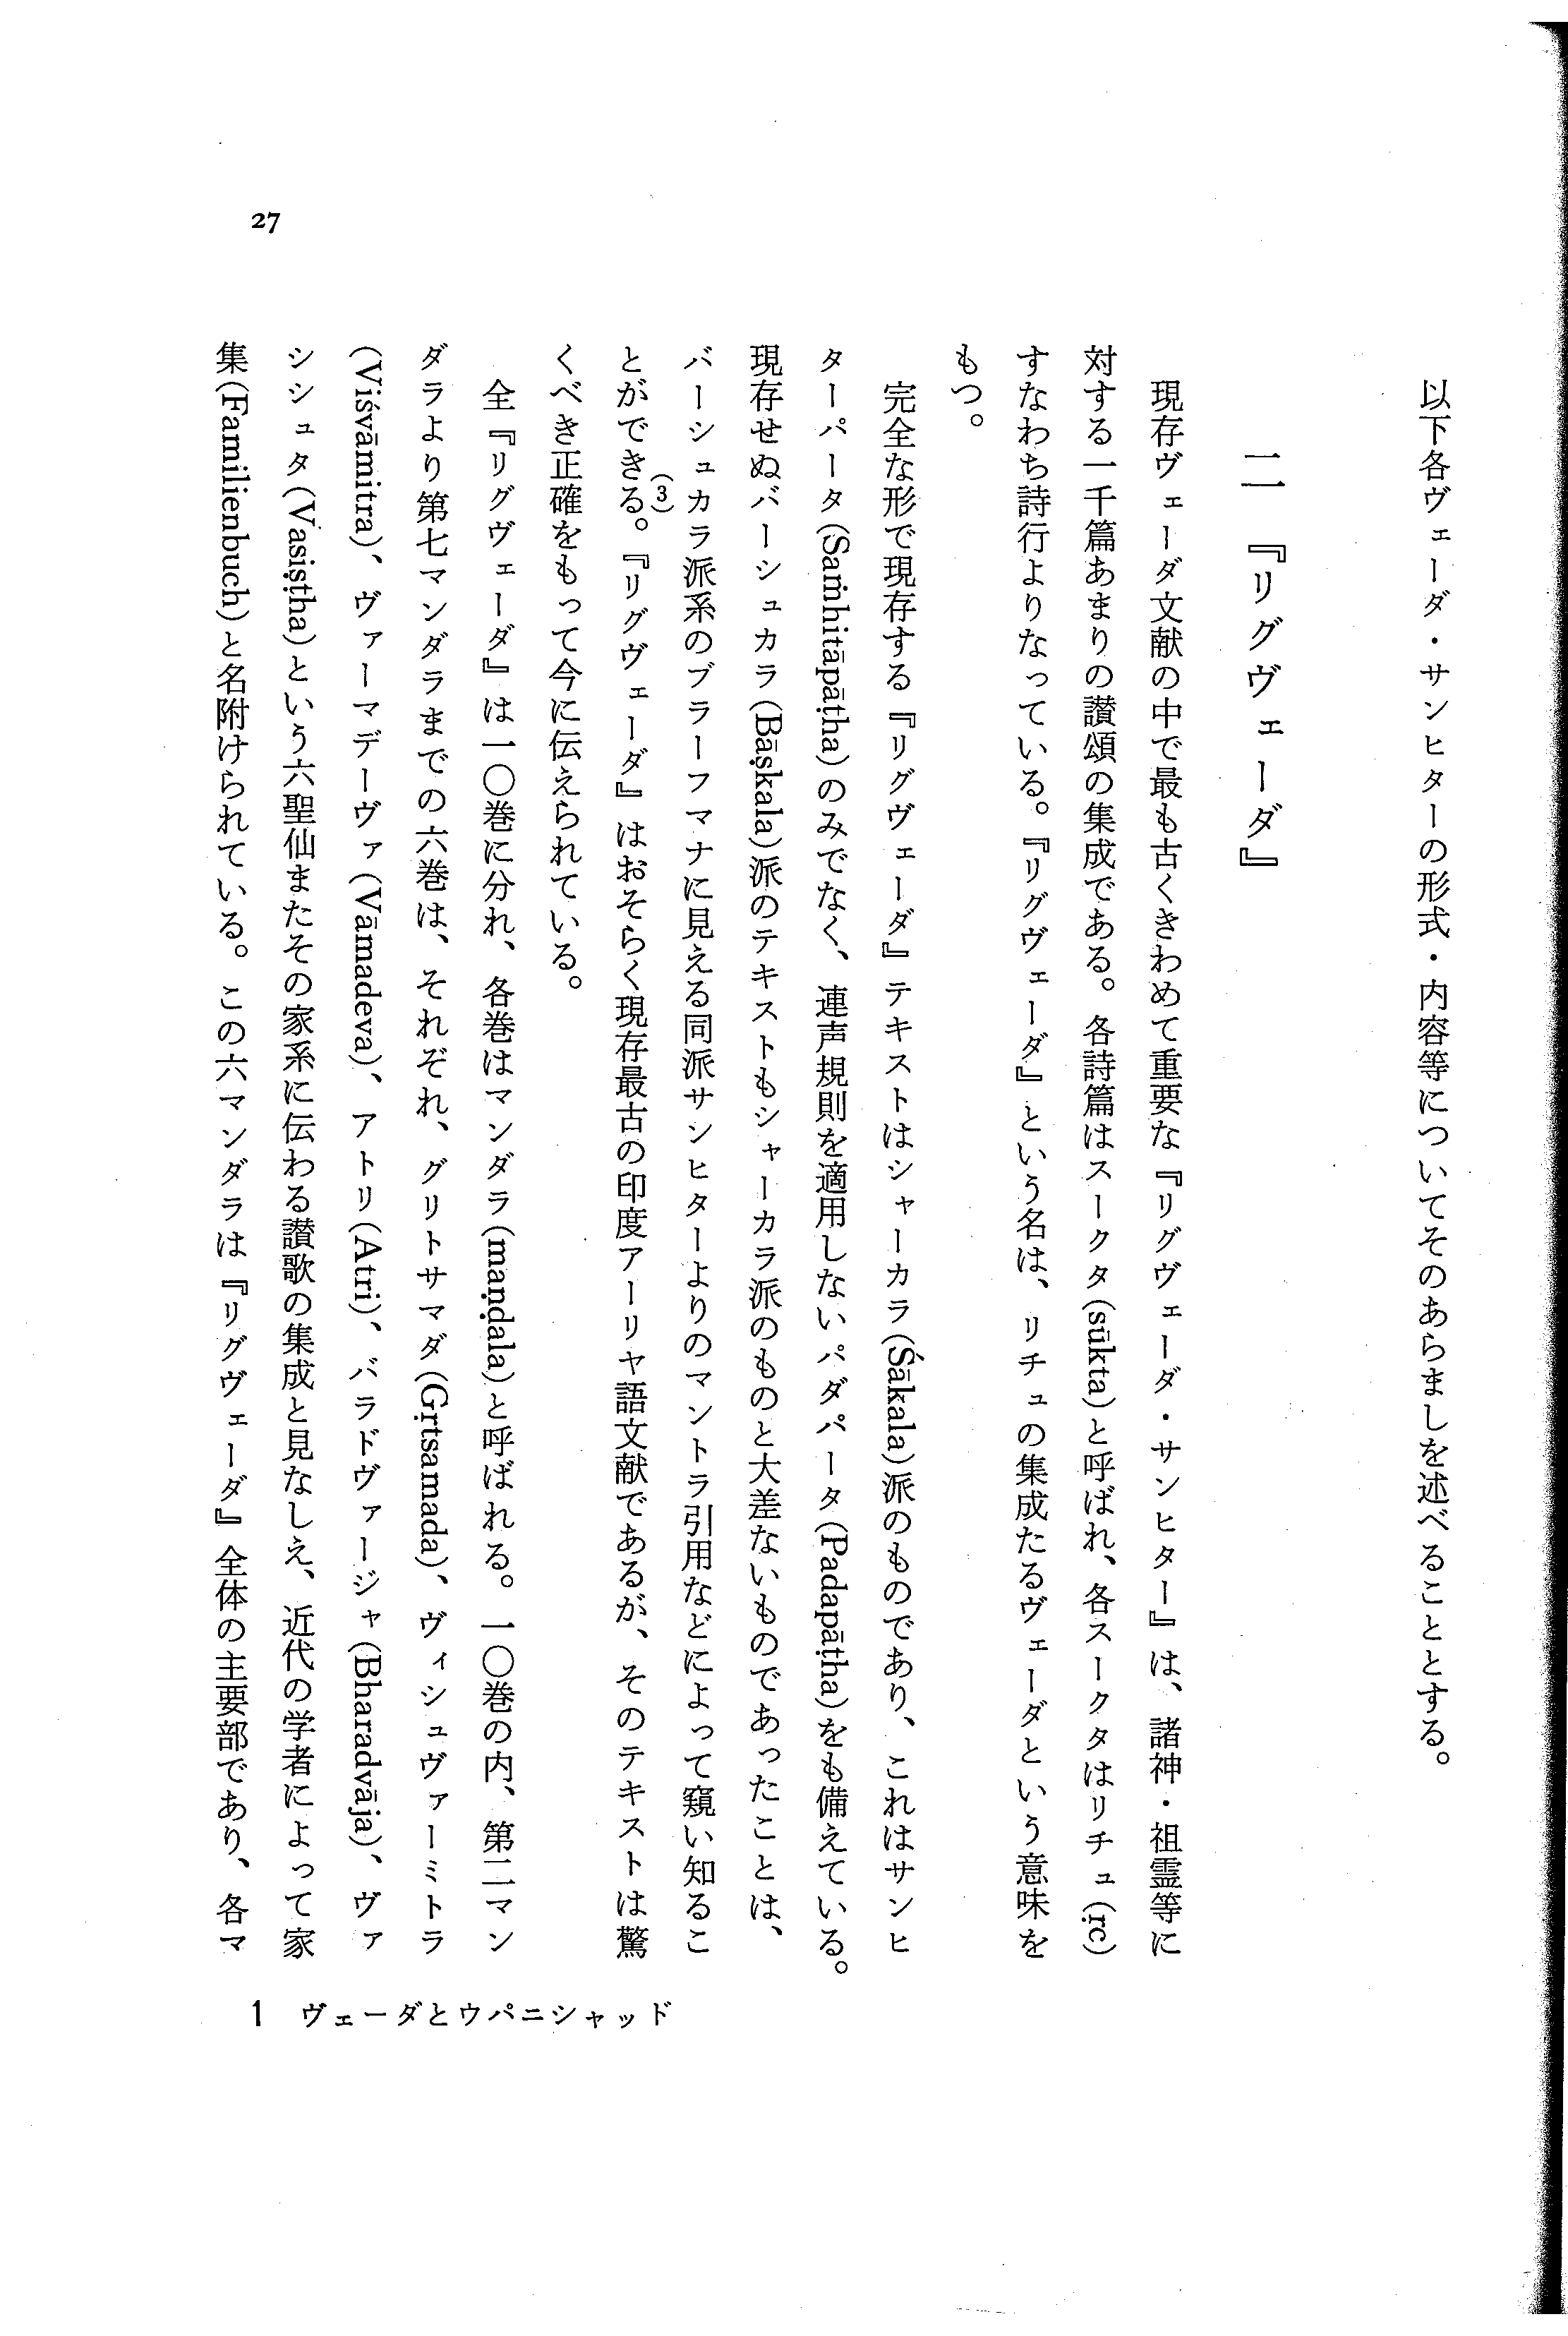 以下各ヴェーダ・サンヒターの形式・内容等についてそのあらましを述べることとする。
二 『リグヴェーダ』
現存ヴェーダ文献の中で最も古くきわめて重要な『リグヴェーダ・サンヒター』は、諸神・祖霊等に
対する一千篇あまりの讃頌の集成である。各詩篇はスークタ(sūkta)と呼ばれ、各スークタはリチュ(ṛc)
すなわち詩行よりなっている。『リグヴェーダ』という名は、リチュの集成たるヴェーダという意味を
もつ。
完全な形で現存する『リグヴェーダ』テキストはシャーカラ(Śākala)派のものであり、これはサンヒ
ターパータ(Saṁhitāpāṭha)のみでなく、連声規則を適用しないパダパータ(Padapāṭha)をも備えている。
現存せぬバーシュカラ(Bāṣkala)派のテキストもシャーカラ派のものと大差ないものであったことは、
バーシュカラ派系のブラーフマナに見える同派サンヒターよりのマントラ引用などによって窺い知るこ
とができる。(3)『リグヴェーダ』はおそらく現存最古の印度アーリヤ語文献であるが、そのテキストは驚
くべき正確をもって今に伝えられている。
全『リグヴェーダ』は一〇巻に分れ、各巻はマンダラ(maṇḍala)と呼ばれる。一〇巻の内、第二マン
ダラより第七マンダラまでの六巻は、それぞれ、グリトサマダ(Gṛtsamada)、ヴィシュヴァーミトラ
(Viśvāmitra)、ヴァーマデーヴァ(Vāmadeva)、アトリ(Atri)、バラドヴァージャ(Bharadvāja)、ヴァ
シシュタ(Vasiṣṭha)という六聖仙またその家系に伝わる讃歌の集成と見なしえ、近代の学者によって家
集(Familienbuch)と名附けられている。この六マンダラは『リグヴェーダ』全体の主要部であり、各マ
27
1 ヴェーダとウパニシャッド